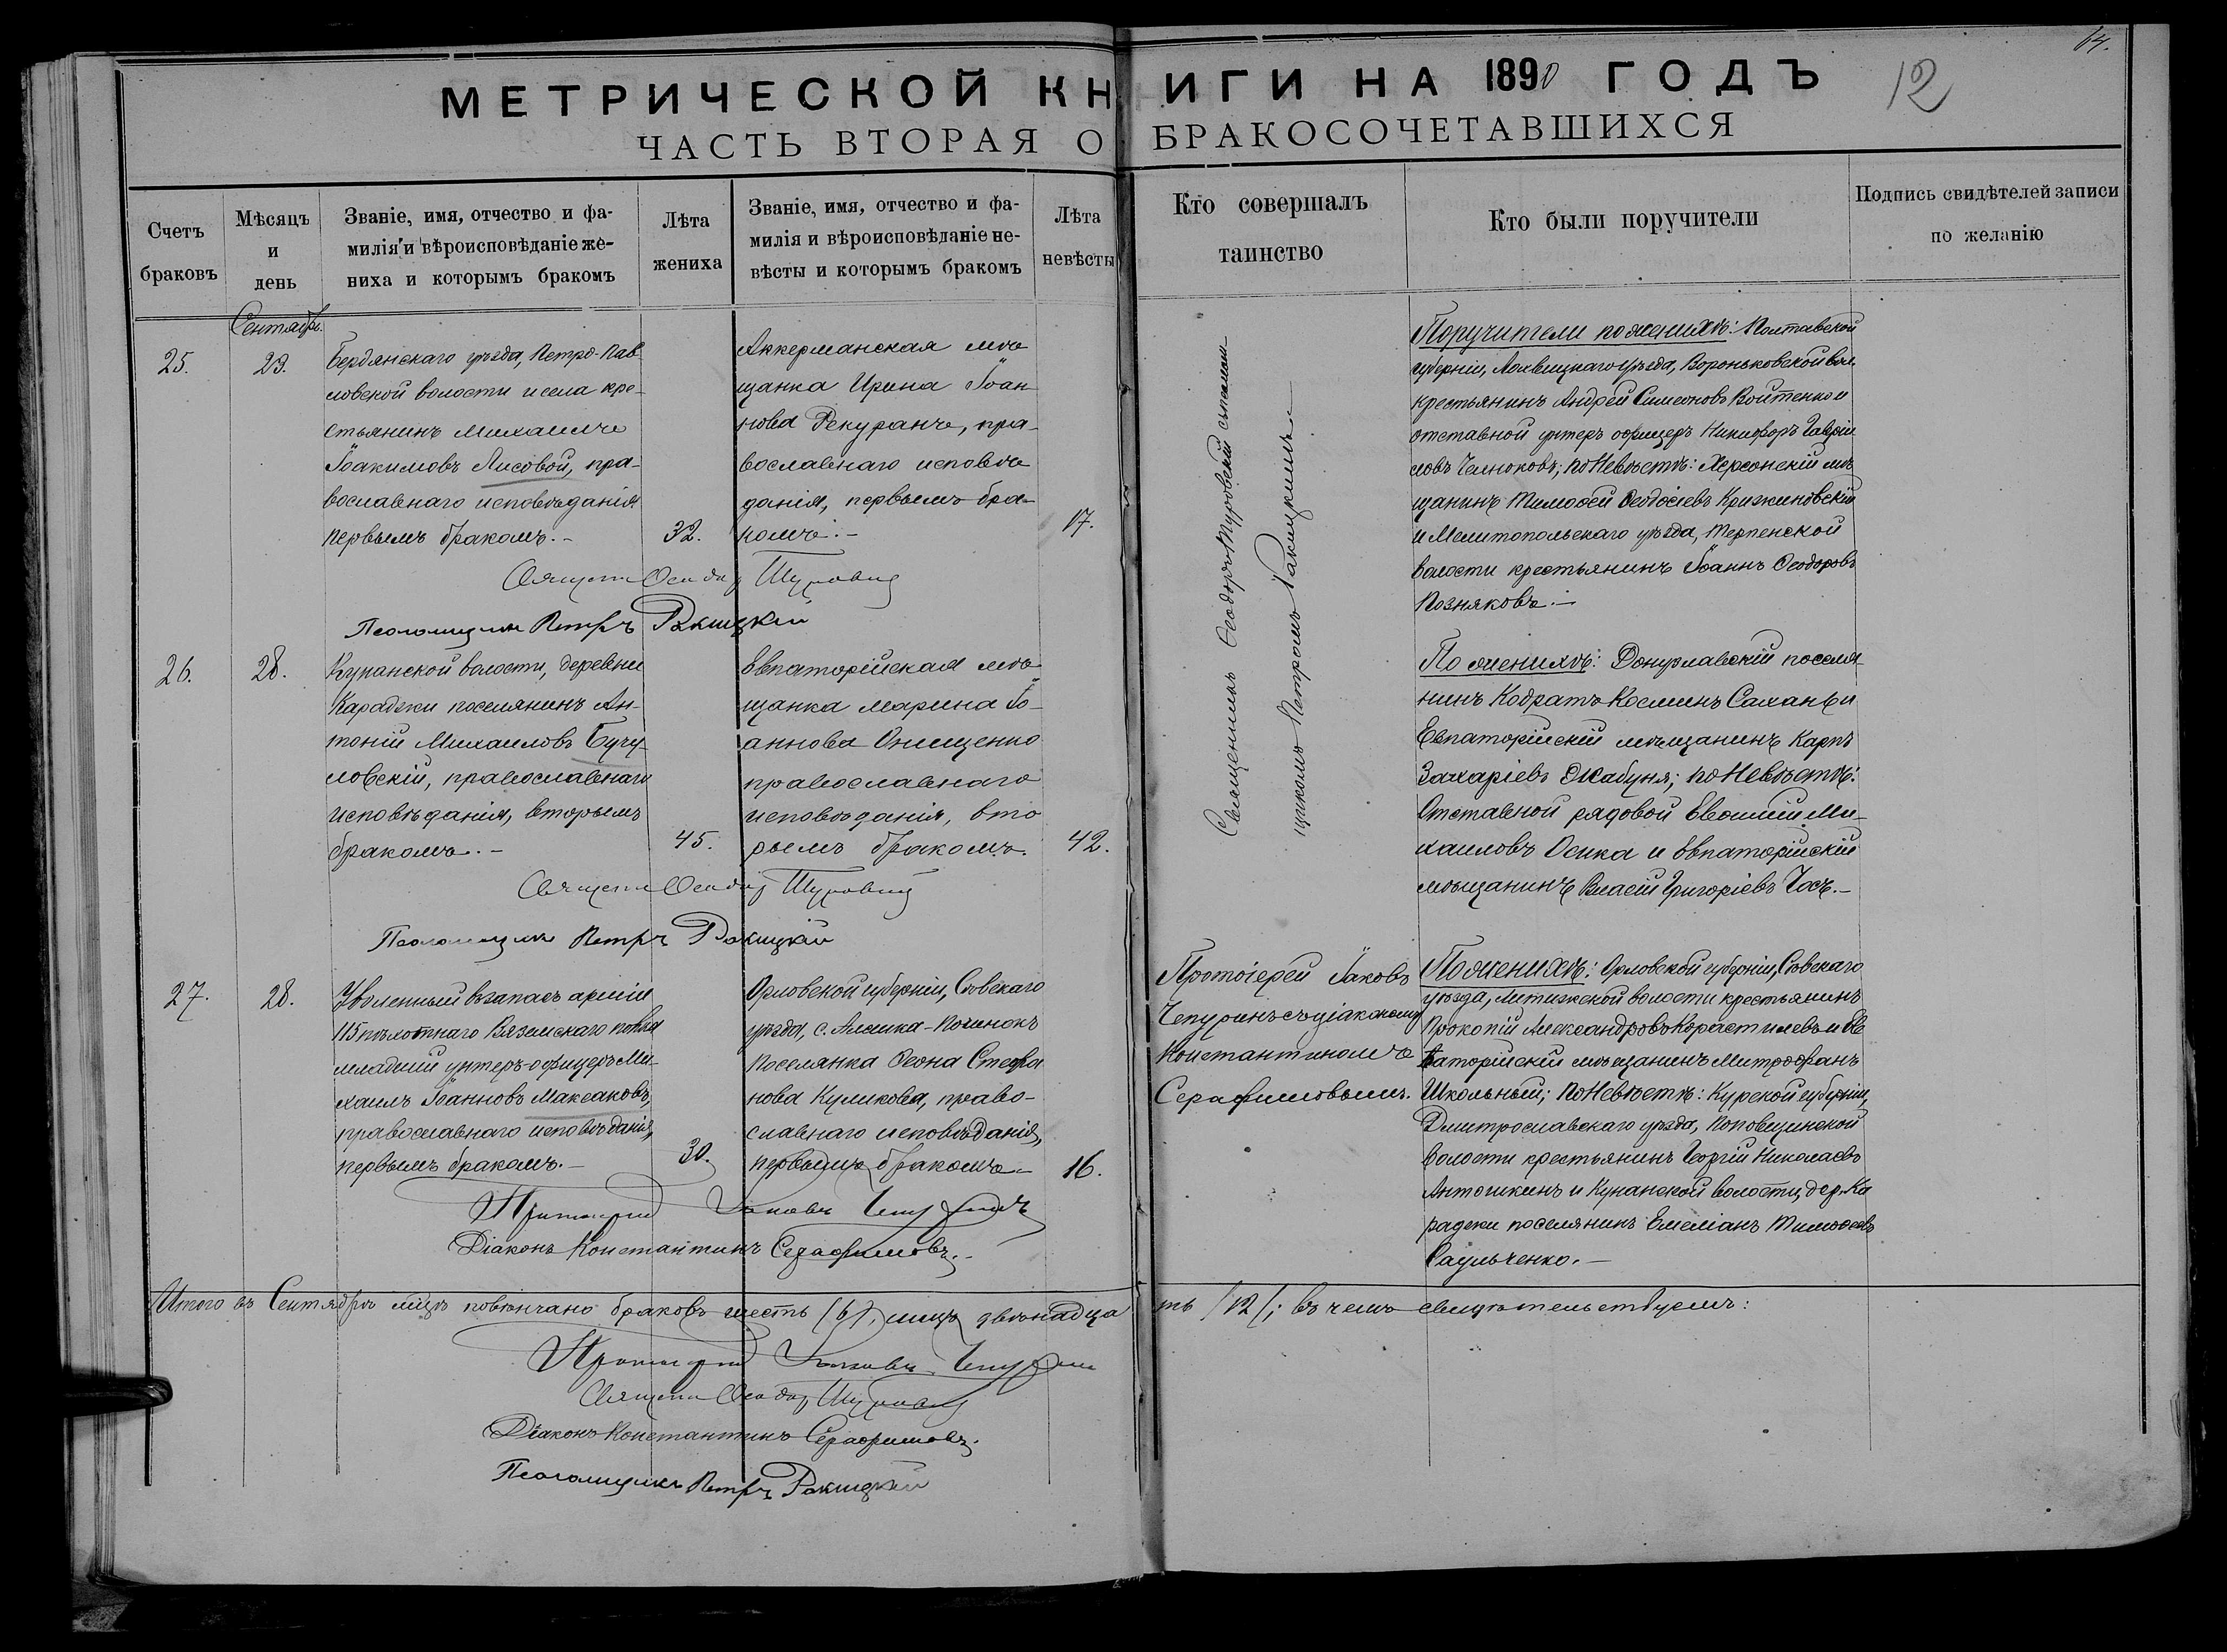 64.
МЕТРИЧЕСКОЙ КНИГИ НА 1890 ГОДЪ
12
ЧАСТЬ ВТОРАЯ О БРАКОСОЧЕТАВШИХСЯ
Счетъ
браковъ
Мѣсяцъ
и
день
Званіе, имя, отчество и фа-
милія и вѣроисповѣданіе же-
ниха и которымъ бракомъ
Лѣта
жениха
Званіе, имя, отчество и фа-
милія и вѣроисповѣданіе не-
вѣсты и которымъ бракомъ
Лѣта
невѣсты
Кто совершалъ
таинство
Кто были поручители
Подпись свидѣтелей записи
по желанію
Сентябрь.
25.
23.
Бердянскаго уѣзда, Петро-Пав
ловской волости и села кре-
стьянинъ Михаилъ
Іоакимовъ Лисовой, пра-
вославнаго исповѣданія
первымъ бракомъ.-
32.
Аккерманская мѣ
щанка Ирина Іоан
нова Рекуранъ, пра-
вославнаго исповѣ
данія, первымъ бра-
комъ.-
17.
Священникъ Ѳеодоръ Туровскій съ псалом
щикомъ Петромъ Ракицкимъ
Поручители по женихѣ: Полтавской
губерніи, Лохвицкаго уѣзда, Вороньковской вол.
крестьянинъ Андрей Симеоновъ Войтенко и
отставной унтеръ офицеръ Никифоръ Гавріи
ловъ Челноковъ; по Невѣстѣ: Херсонскій мѣ
щанинъ Тимоѳей Ѳеодосіевъ Крижиновскій
и Мелитопольскаго уѣзда, Терпенской
волости крестьянинъ Іоаннъ Ѳеодоровъ
Позняковъ.-
Священ Ѳеодор Туровскій
Псаломщикъ Петръ Ракицкій
26.
28.
Кунанской волости, деревни
Караджи поселянинъ Ан-
тоній Михаиловъ Бучу
ловскій, православнаго
исповѣданія, вторымъ
бракомъ.-
45.
Евпаторійская мѣ
щанка Марина Іо-
аннова Онищенко
православнаго
исповѣданія, вто
рымъ бракомъ.
42.
По женихѣ: Донузлавскій поселя
нинъ Кодратъ Косминъ Сахань и
Евпаторійскій мѣщанинъ Карпъ
Захаріевъ Скабуня; по Невѣстѣ:
Отставной рядовой Евфимій Ми-
хаиловъ Осика и Евпаторійскій
мѣщанинъ Власій Григоріевъ Часъ.-
Священ Ѳеодор Туровскій
Псаломщикъ Петръ Ракицкій
27.
28.
Уволенный въ запасъ арміи
115 пѣхотнаго Вяземскаго полка
младшій унтеръ-офицеръ Ми-
хаилъ Іоанновъ Максаковъ,
православнаго исповѣданія,
первымъ бракомъ.-
30.
Орловской губерніи, Сѣвскаго
уѣзда, с. Алешка-Починокъ
поселянка Ѳеона Стефа
нова Куликова, право-
славнаго исповѣданія,
первымъ бракомъ.-
16.
Протоіерей Іаковъ
Чепуринъ съ діакономъ
Константиномъ
Серафимовымъ.
По женихѣ: Орловской губерніи, Сѣвскаго
уѣзда, Литижской волости крестьянинъ
Прокопій Александровъ Корастилевъ и Ев
паторійскій мѣщанинъ Митрофанъ
Школьный; по Невѣстѣ: Курской губерніи,
Дмитрославскаго уѣзда, Поповщинской
волости крестьянинъ Георгій Николаевъ
Антошкинъ и Кунанской волости, дер. Ка
раджи поселянинъ Емеліанъ Тимоѳеевъ
Саульченко.-
Протоіерей Іаковъ Чепуринъ
Діаконъ Константинъ Серафимовъ.-
Итого въ Сентябрѣ мѣсяцѣ повѣнчано браковъ шесть (6), лицъ двѣнадцать (12); въ чемъ свидѣтельствуемъ:
Протоіерей Іаковъ Чепуринъ
Священ Ѳеодор Туровскій
Діаконъ Константинъ Серафимовъ.
Псаломщикъ Петръ Ракицкій